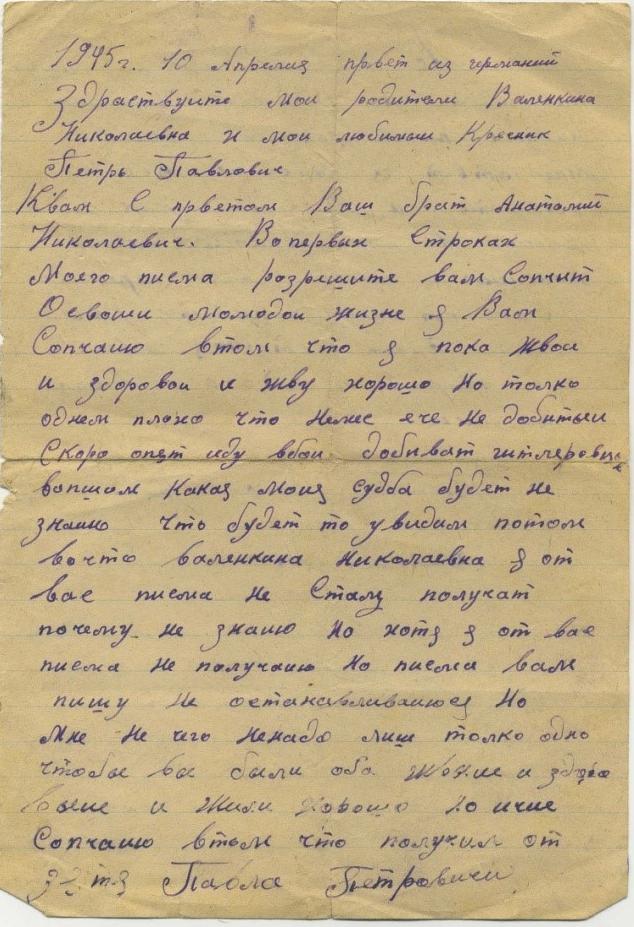 1945г. 10 Апрелия првет из германий
Здраствуите мои родители Валенкина
Николаевна и мои любимыи Кресник
Петрь Павлович
Квам С прветом Ваш брат Анатолий
Николаевич. Вопервых Строках
Моего писма розрешите вам Сопчит
Освоши молодои жизне я Вам
Сопчаию втом что я пока жвои
и здоровои и жву хорошо Но толко
однем плохо что Немес яче не добитыи
Скоро опят иду вбои добиват гитлеровце
вопшом Какая Моия судба будет не
знаию что будет то увидим потом
вочто Валенкина Николаевна я от
вас писма не Сталу получат
почему не знаию Но хотя я от вас
писма не получаию Но писма вам
пишу не останавливаиюся Но
Мне Не чего ненадо лиш толко одно
чтобы вы были оба Живие и здоро
выие и Жили хорошо Но ичие
Сопчаию втом что получил от
Павла Петровичи